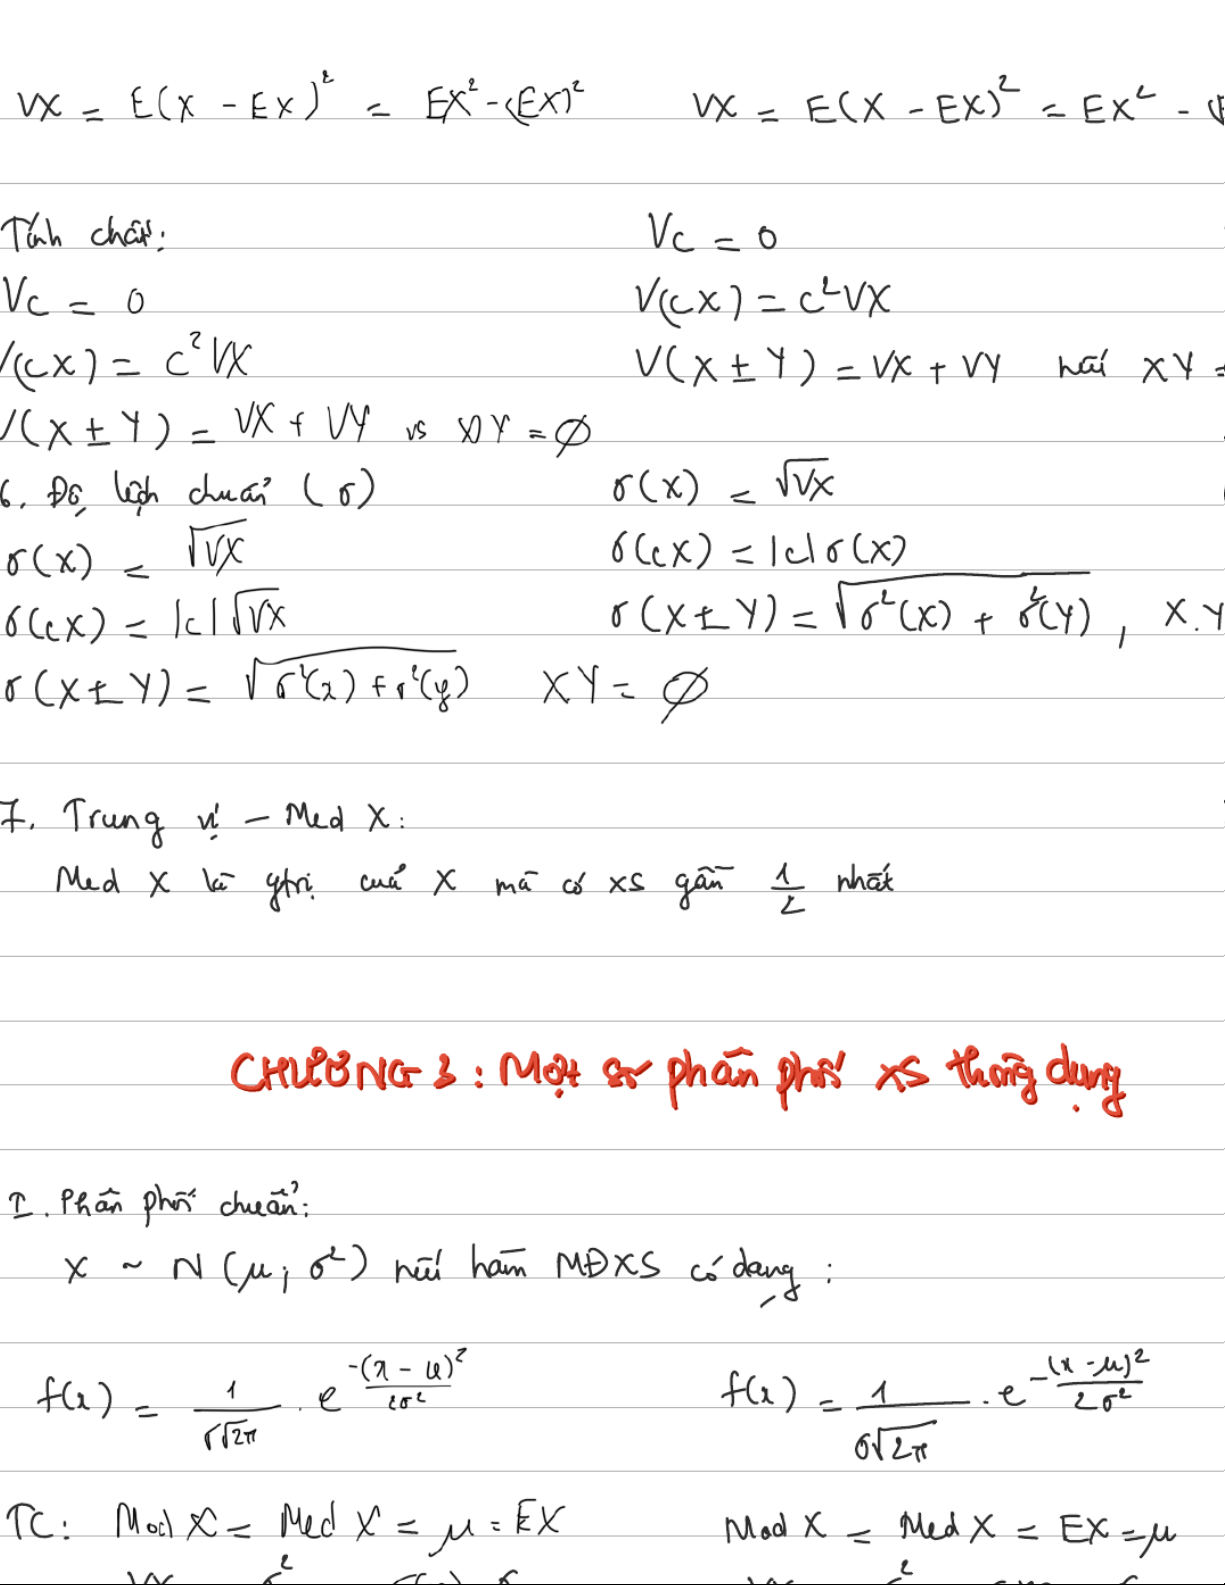 VX = E(X - EX)² = EX² - (EX)² VX = E(X - EX)² = EX² -
Tính chất: Vc = 0
Vc = 0 V(cX) = c²VX
V(cX) = c²VX V(X ± Y) = VX + VY nếu XY =
V(X ± Y) = VX + VY vs XY = ∅
6. Độ lệch chuẩn (σ) σ(x) = √VX
σ(x) = √VX σ(cX) = |c|σ(x)
σ(cX) = |c|√VX σ(X ± Y) = √σ²(x) + σ²(y), X.Y
σ(X ± Y) = √σ²(x) + σ²(y) XY = ∅
7. Trung vị - Med X:
Med X là gtrị của X mà có xs gần 1/2 nhất
CHƯƠNG 3: Một số phân phối XS thông dụng
I. Phân phối chuẩn:
X ~ N(μ; σ²) nếu hàm MĐXS có dạng:
f(x) = 1/(σ√2π) . e^(-(x - μ)²/2σ²) f(x) = 1/(σ√2π) . e^(-(x - μ)²/2σ²)
TC: Mod X = Med X = μ = EX Mod X = Med X = EX = μ